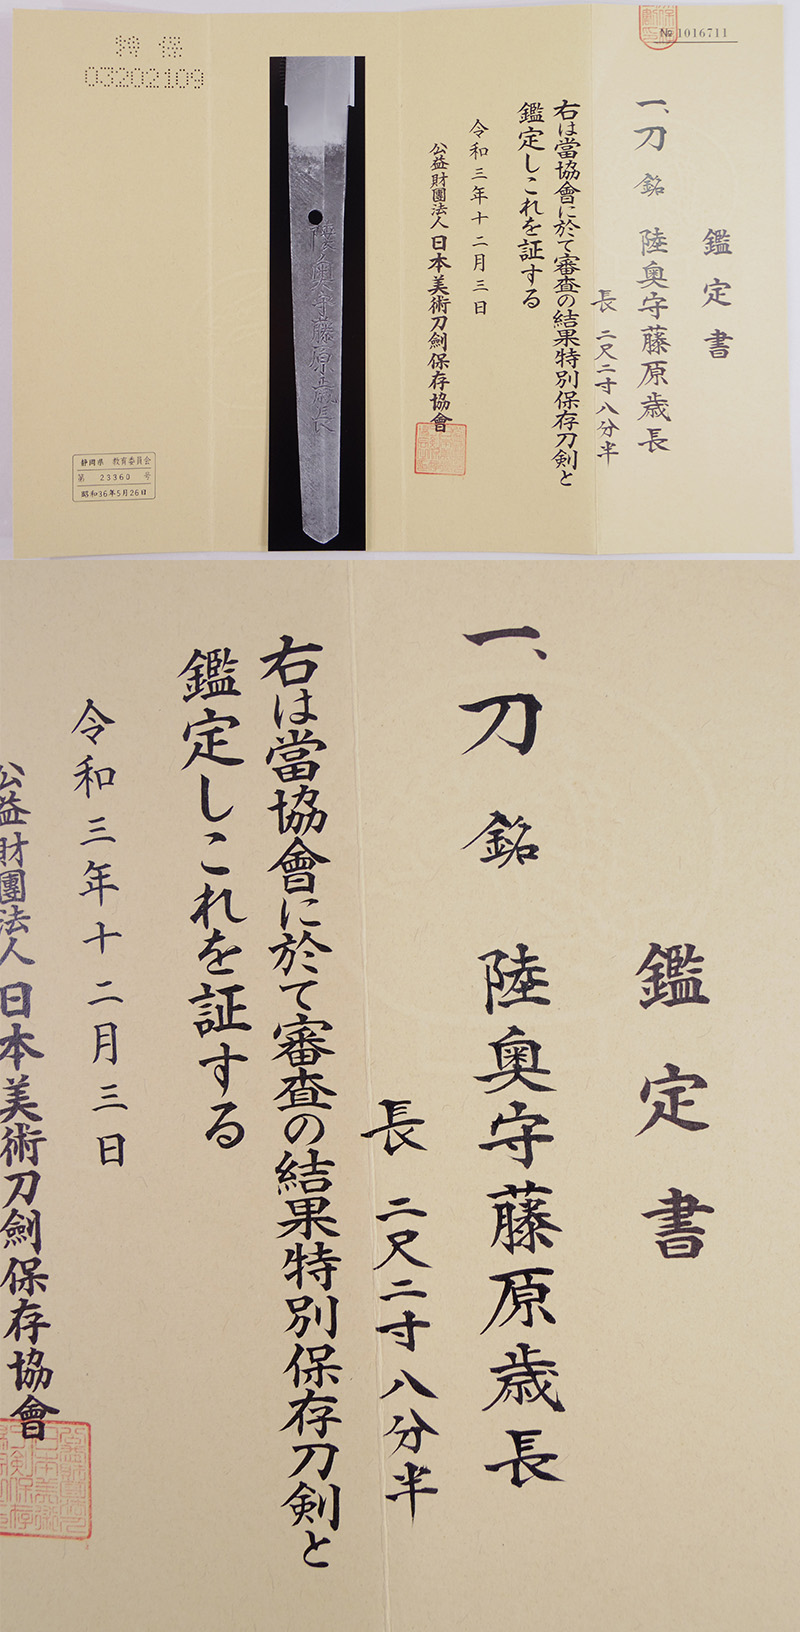 № 1016711
鑑定書
一、刀 銘 陸奥守藤原歳長
長 二尺二寸八分半
右は當協會に於て審査の結果特別保存刀剣と
鑑定しこれを証する
令和三年十二月三日
公益財團法人 日本美術刀劍保存協會
陸奥守藤原歳長
特 保
03202109
静岡県 教育委員会
第 23360 号
昭和36年5月26日
鑑定書
一、刀 銘 陸奥守藤原歳長
長 二尺二寸八分半
右は當協會に於て審査の結果特別保存刀剣と
鑑定しこれを証する
令和三年十二月三日
公益財團法人 日本美術刀劍保存協會